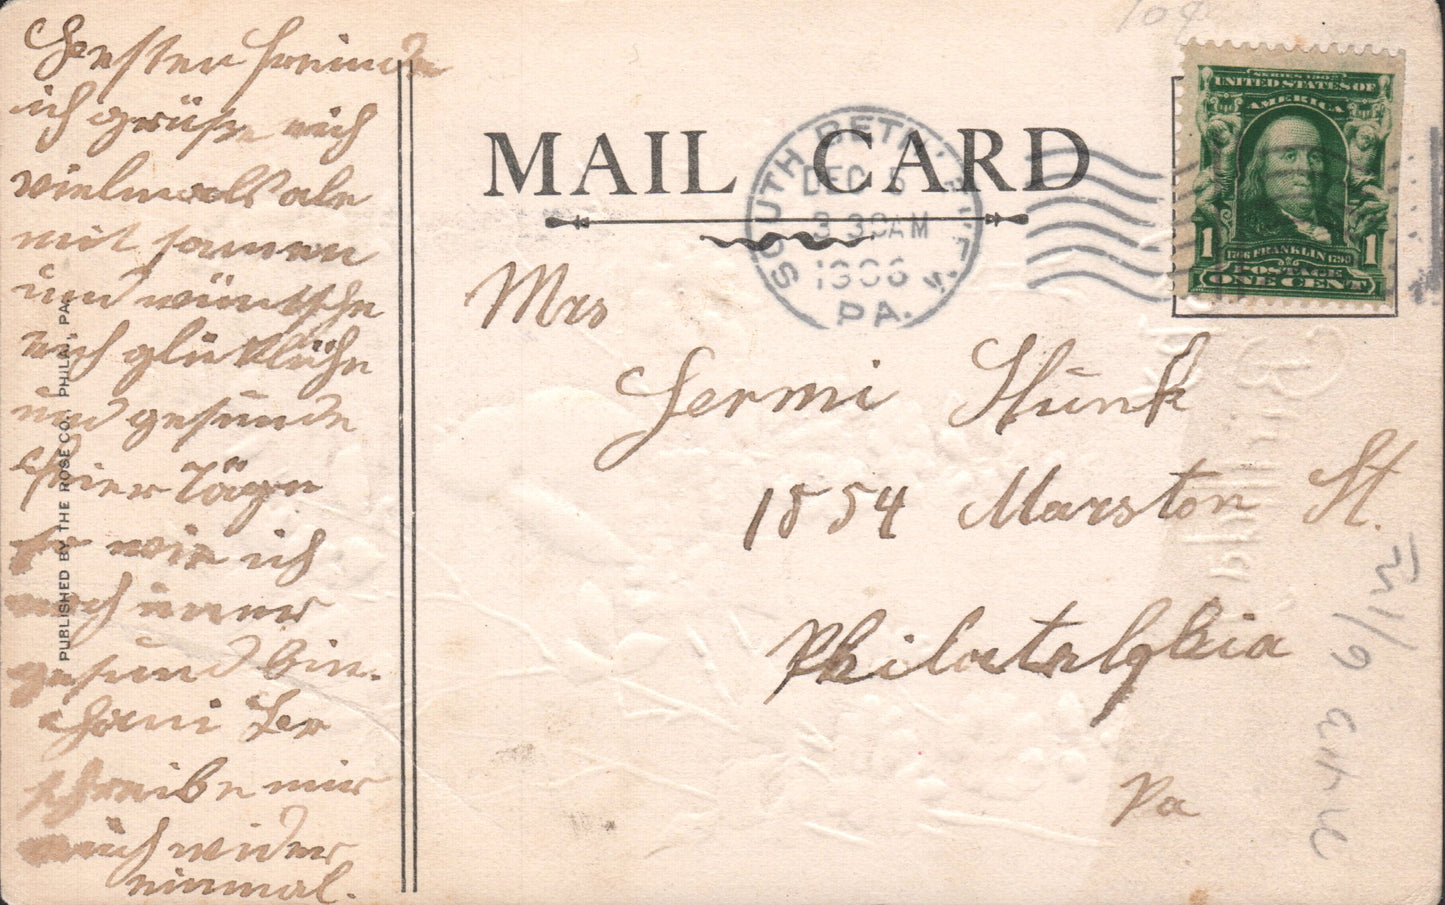 ich grüße eich
vielmals ale
mit samen
und wüntsche
eich glücklühe
und gesunde
feier Täge
wie ich
noch imer
gesund bin.
schreibe mir
auch wider
einmal.
PUBLISHED BY THE ROSE CO., PHILA., PA.
10¢
MAIL CARD
SOUTH BETHLEHEM
DEC 5
3 30 AM
1906
PA.
SERIES 1902
UNITED STATES OF
AMERICA
1 1
1706 FRANKLIN 1790
POSTAGE
ONE CENT
Mrs
Fermi Stunk
1854 Marston St.
Philatelphia
Pa